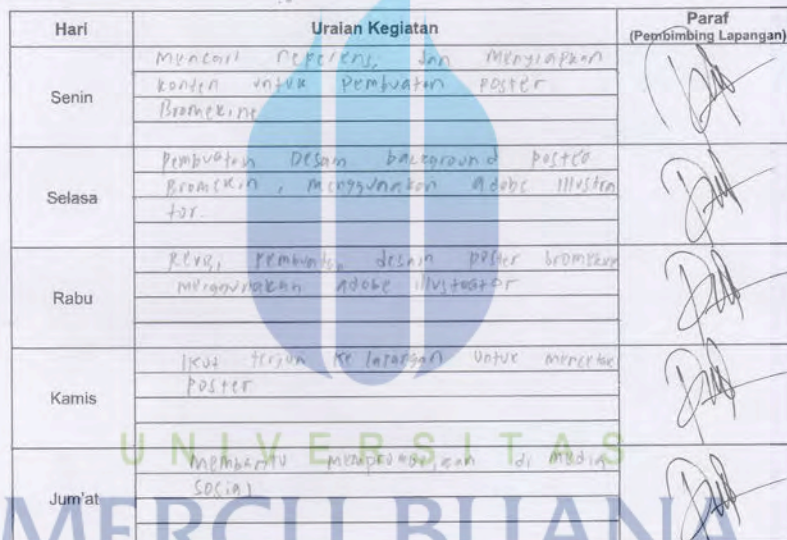 Hari Uraian Kegiatan Paraf
(Pembimbing Lapangan)
Senin
Mencari referensi dan Menyiapkan
konten untuk Pembuatan poster
Bromekine
Selasa
Pembuatan Desain background poster
Bromekin, menggunakan adobe illustra
tor.
Rabu
Pembuatan desain poster bromekine
menggunakan adobe illustrator
Kamis
Ikut terjun ke lapangan untuk mencetak
Poster
UNIVERSITAS
Jum'at
Membantu mempromosikan di media
sosial
MERCU BUANA